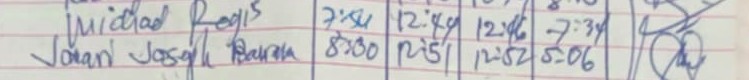 Michael Regis 7:54 12:44 12:46 7:34
Joseph 8:00 12:51 12:52 5:06